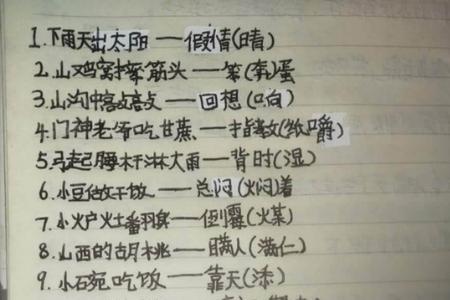 1.下雨天出太阳——假情(晴)
2.山鸡窝摔筋头——笨()蛋
3.山沟中——回想(响)
4.门神老爷吃甘蔗——指教(纸嚼)
5.马起淋大雨——背时(湿)
6.小豆做干饭——总闷(焖)着
7.小炉火——倒霉(火某)
8.山西的胡桃——瞒人(满仁)
9.小碗吃饭——靠天(添)